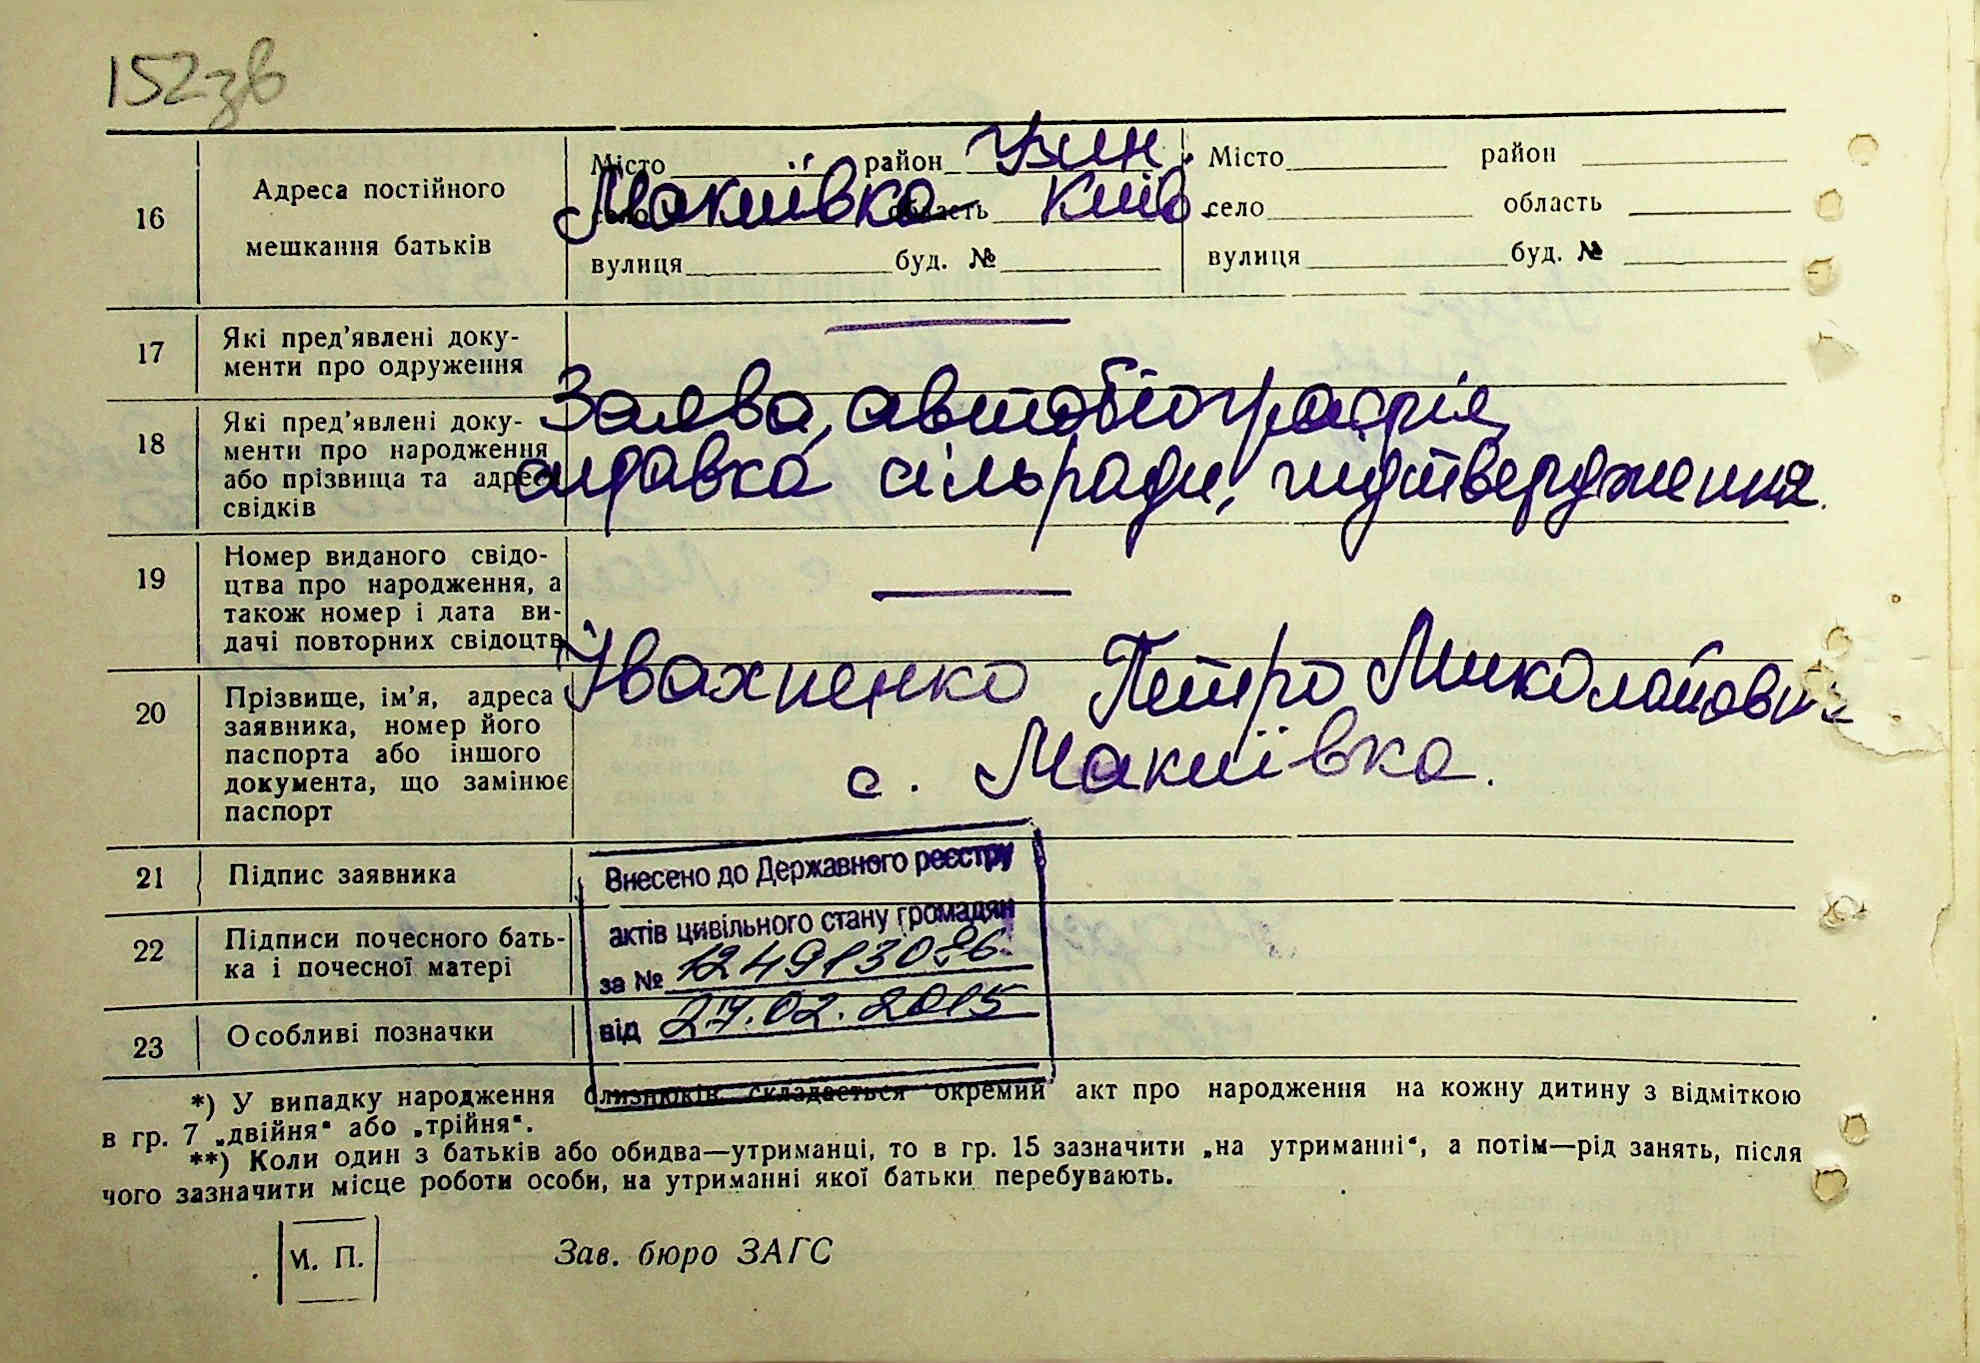 152зв
16 Адреса постійного мешкання батьків
Місто район Узин.
село Макиївка область Київ.
вулиця буд. №
Місто район
село область
вулиця буд. №
17 Які пред'явлені доку-
менти про одруження
18 Які пред'явлені доку-
менти про народження
або прізвища та адреси
свідків
Заява, автобіографія,
справка сільради, підтвердження.
19 Номер виданого свідо-
цтва про народження, а
також номер і дата ви-
дачі повторних свідоцтв
20 Прізвище, ім'я, адреса
заявника, номер його
паспорта або іншого
документа, що замінює
паспорт
Івахненко Петро Миколайович
с. Макиївка.
21 Підпис заявника
22 Підписи почесного бать-
ка і почесної матері
23 Особливі позначки
Внесено до Державного реєстру
актів цивільного стану громадян
за №
від 27.02.2015
*) У випадку народження близнюків складається окремий акт про народження на кожну дитину з відміткою
в гр. 7 „двійня" або „трійня".
**) Коли один з батьків або обидва—утриманці, то в гр. 15 зазначити „на утриманні", а потім—рід занять, після
чого зазначити місце роботи особи, на утриманні якої батьки перебувають.
М. П.
Зав. бюро ЗАГС